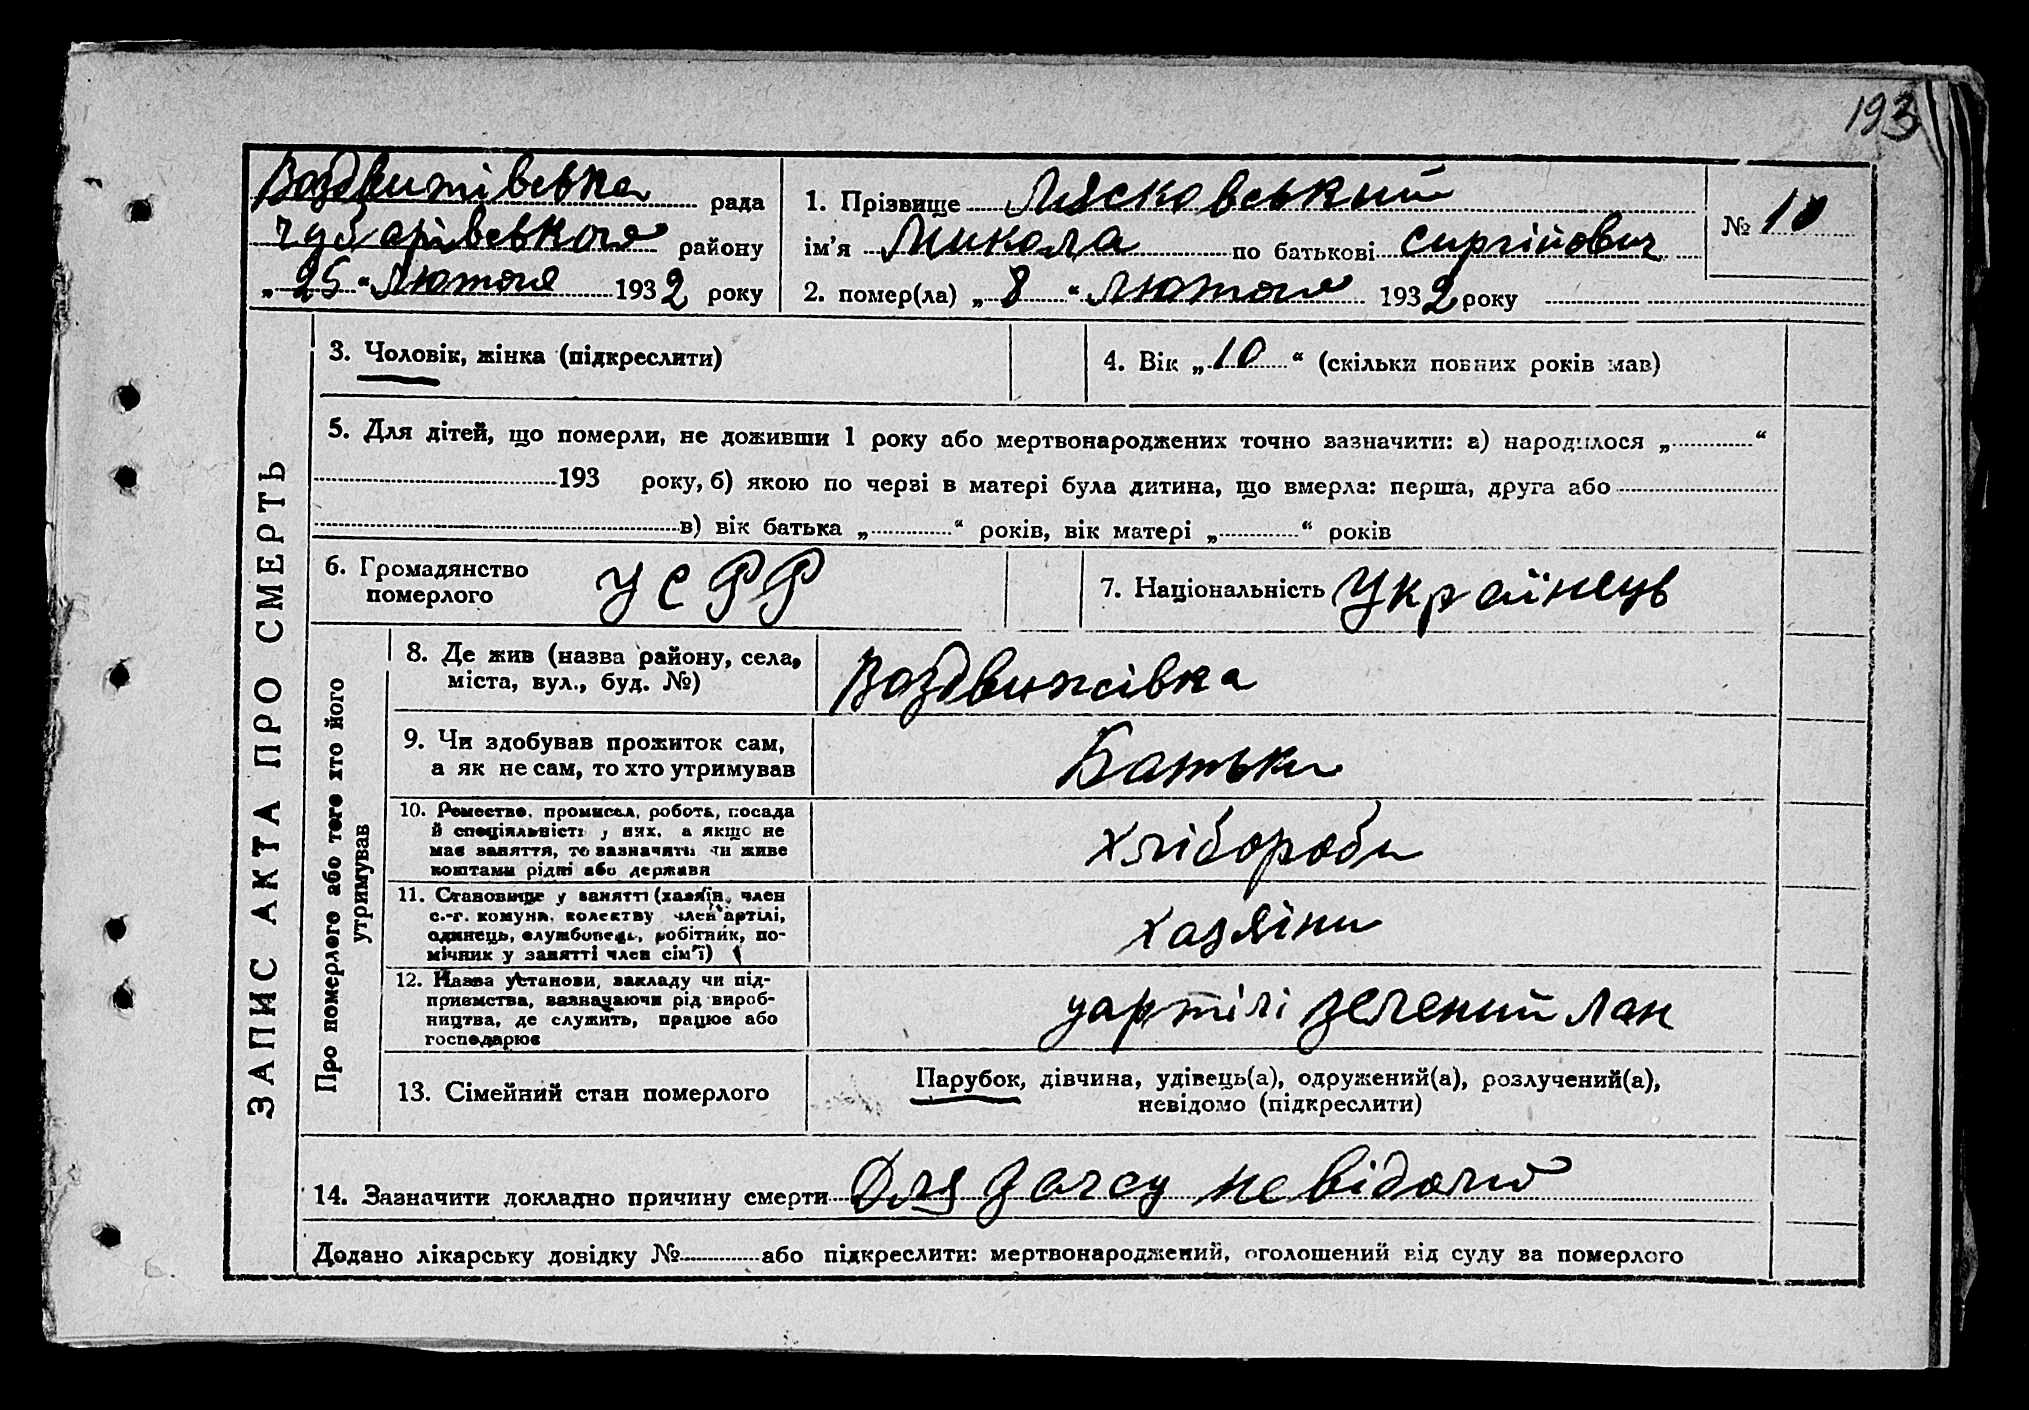 193
Воздвижівська рада
Чубарівського району
„25“ Лютого 1932 року
1. Прізвище Лясковський
ім’я Микола по батькові Сиргійович
2. помер(ла) „8“ Лютого 1932 року
№ 10
ЗАПИС АКТА ПРО СМЕРТЬ
3. Чоловік, жінка (підкреслити)
4. Вік „10“ (скільки повних років мав)
5. Для дітей, що померли, не доживши 1 року або мертвонароджених точно зазначити: а) народилося „ “
193 року, б) якою по черзі в матері була дитина, що вмерла: перша, друга або
в) вік батька „ “ років, вік матері „ “ років
6. Громадянство
померлого
УСРР
7. Національність Українець
Про померлого або того хто його
утримував
8. Де жив (назва району, села,
міста, вул., буд. №)
Воздвижівка
9. Чи здобував прожиток сам,
а як не сам, то хто утримував
Батьки
10. Ремество, промисел, робота, посада
й спеціяльність у них, а якщо не
має заняття, то зазначити чи живе
коштами рідні або держави
хлібороби
11. Становище у занятті (хазяїн, член
с.-г. комуни, колективу член артілі,
одинець, службовець, робітник, по-
мічник у занятті член сім’ї)
хазяіни
12. Назва установи, закладу чи під-
приємства, зазначаючи рід вироб-
ництва, де служить, працює або
господарює
у артілі зелений лан
13. Сімейний стан померлого
Парубок, дівчина, удівець(а), одружений(а), розлучений(а),
невідомо (підкреслити)
14. Зазначити докладно причину смерти Для загсу невідомо
Додано лікарську довідку № або підкреслити: мертвонароджений, оголошений від суду за померлого